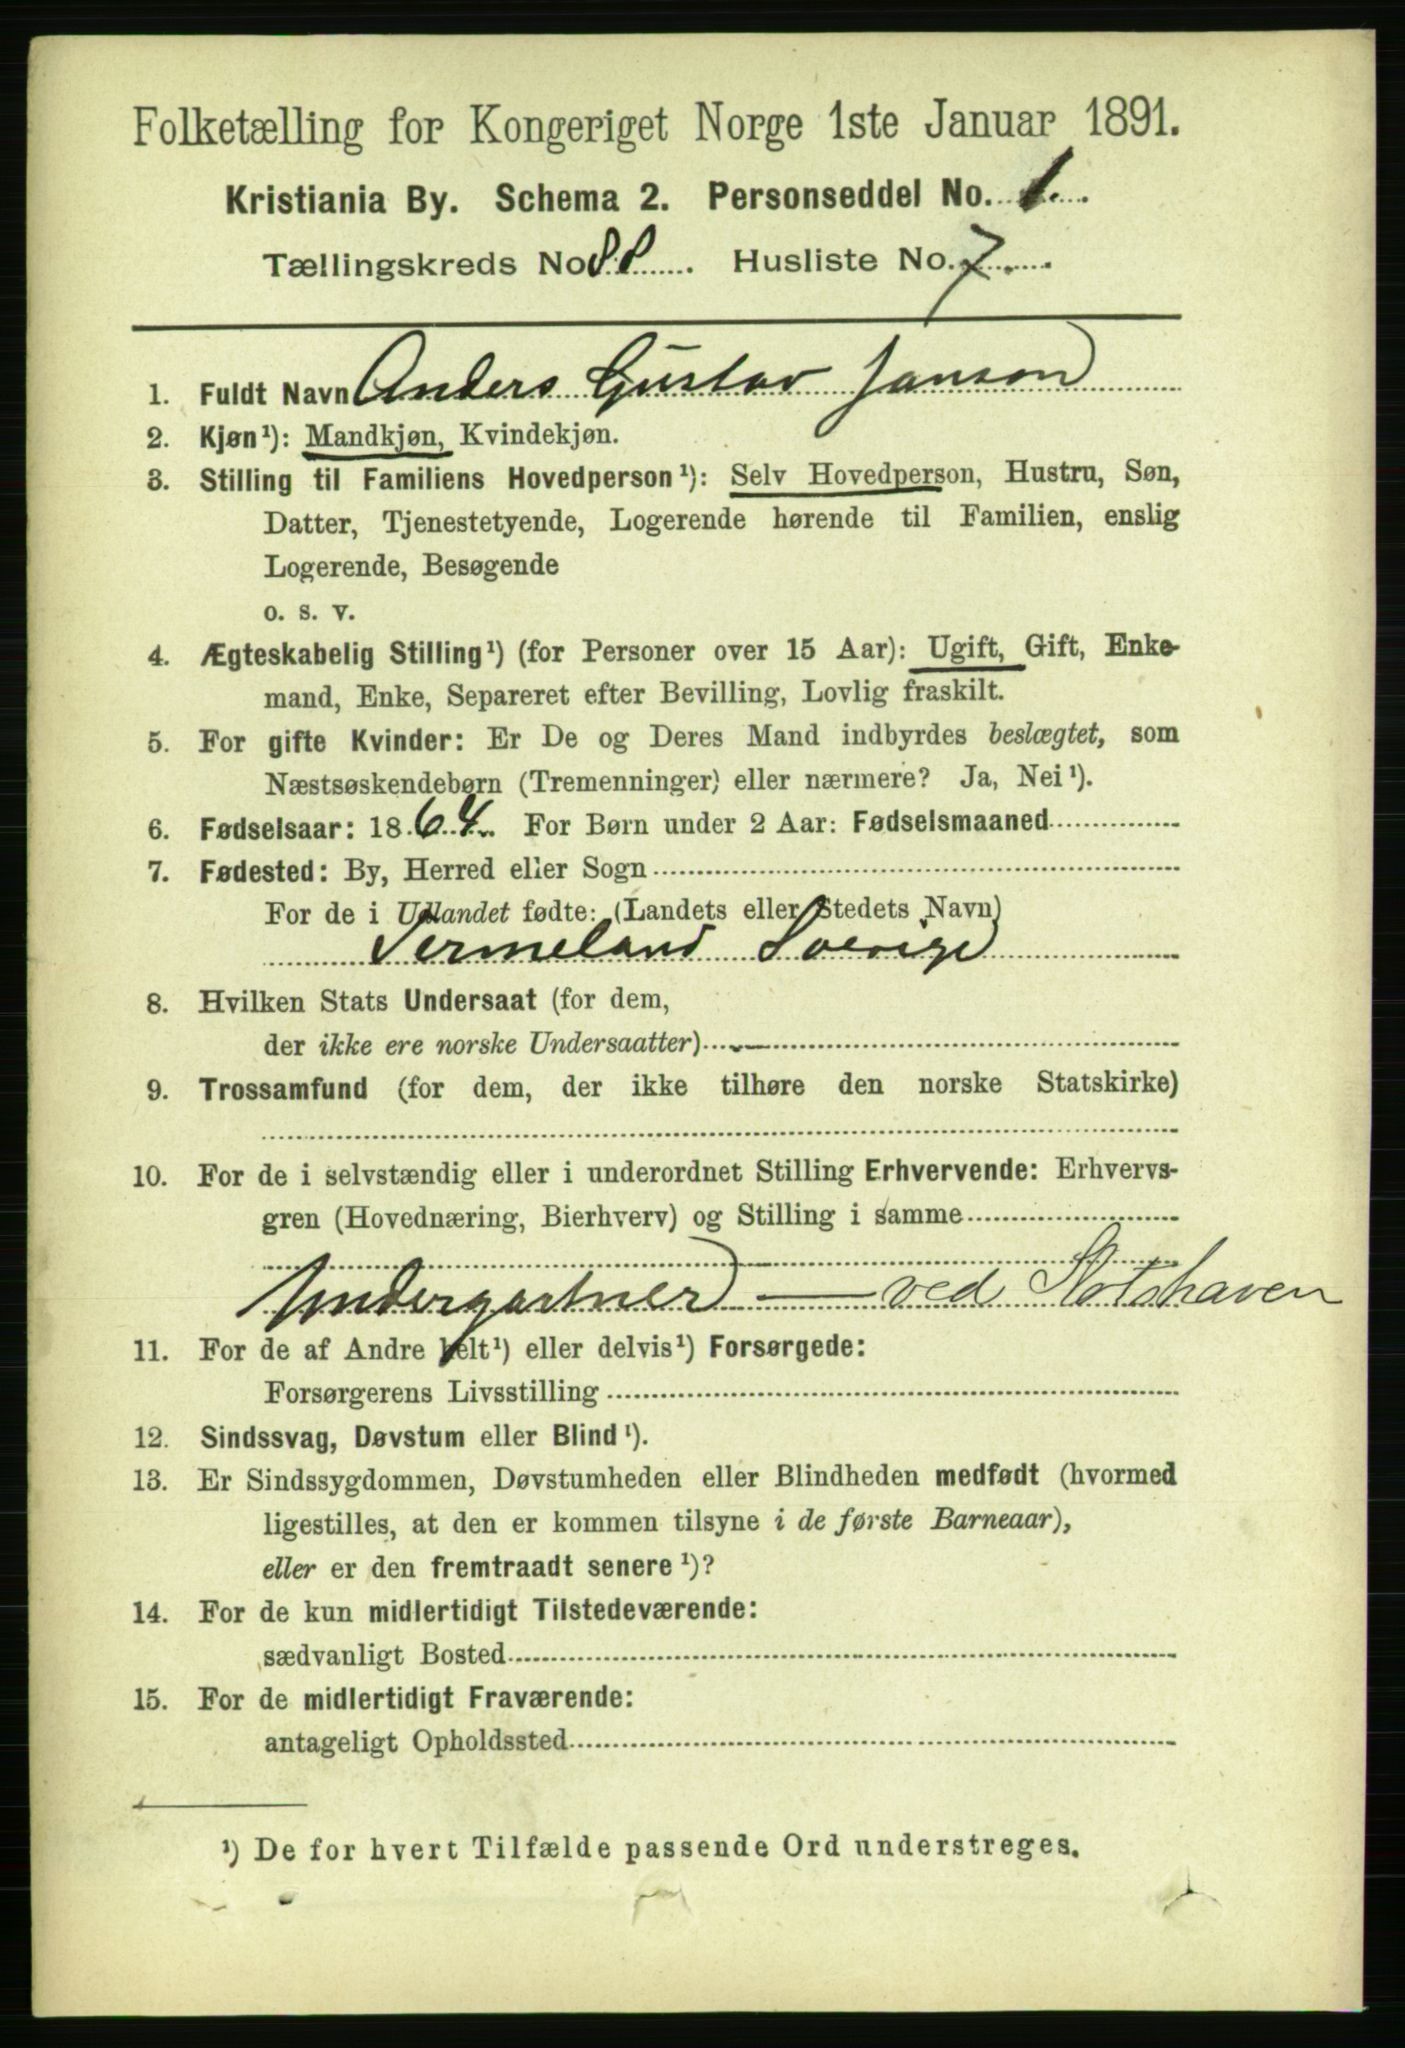 Folketælling for Kongeriget Norge 1ste Januar 1891.
Kristiania By. Schema 2. Personseddel No. 1.
Tællingskreds No 88 Husliste No. 7.
1. Fuldt Navn Anders Gustav Janson
2. Kjøn¹): Mandkjøn, Kvindekjøn.
3. Stilling til Familiens Hovedperson¹): Selv Hovedperson, Hustru, Søn,
Datter, Tjenestetyende, Logerende hørende til Familien, enslig
Logerende, Besøgende
o. s. v.
4. Ægteskabelig Stilling¹) (for Personer over 15 Aar): Ugift, Gift, Enke-
mand, Enke, Separeret efter Bevilling, Lovlig fraskilt.
5. For gifte Kvinder: Er De og Deres Mand indbyrdes beslægtet, som
Næstsøskendebørn (Tremenninger) eller nærmere? Ja, Nei¹).
6. Fødselsaar: 1864. For Børn under 2 Aar: Fødselsmaaned
7. Fødested: By, Herred eller Sogn
For de i Udlandet fødte: (Landets eller Stedets Navn)
Vermeland Sverige
8. Hvilken Stats Undersaat (for dem,
der ikke ere norske Undersaatter)
9. Trossamfund (for dem, der ikke tilhøre den norske Statskirke)
10. For de i selvstændig eller i underordnet Stilling Erhvervende: Erhvervs-
gren (Hovednæring, Bierhverv) og Stilling i samme
Undergartner — ved Slotshaven
11. For de af Andre helt¹) eller delvis¹) Forsørgede:
Forsørgerens Livsstilling
12. Sindssvag, Døvstum eller Blind¹).
13. Er Sindssygdommen, Døvstumheden eller Blindheden medfødt (hvormed
ligestilles, at den er kommen tilsyne i de første Barneaar),
eller er den fremtraadt senere¹)?
14. For de kun midlertidigt Tilstedeværende:
sædvanligt Bosted
15. For de midlertidigt Fraværende:
antageligt Opholdssted
¹) De for hvert Tilfælde passende Ord understreges.